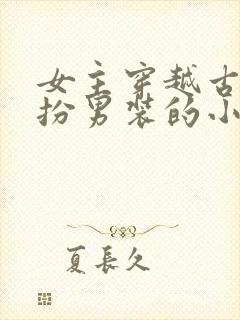 女主穿越古
扮男装的小
夏長久